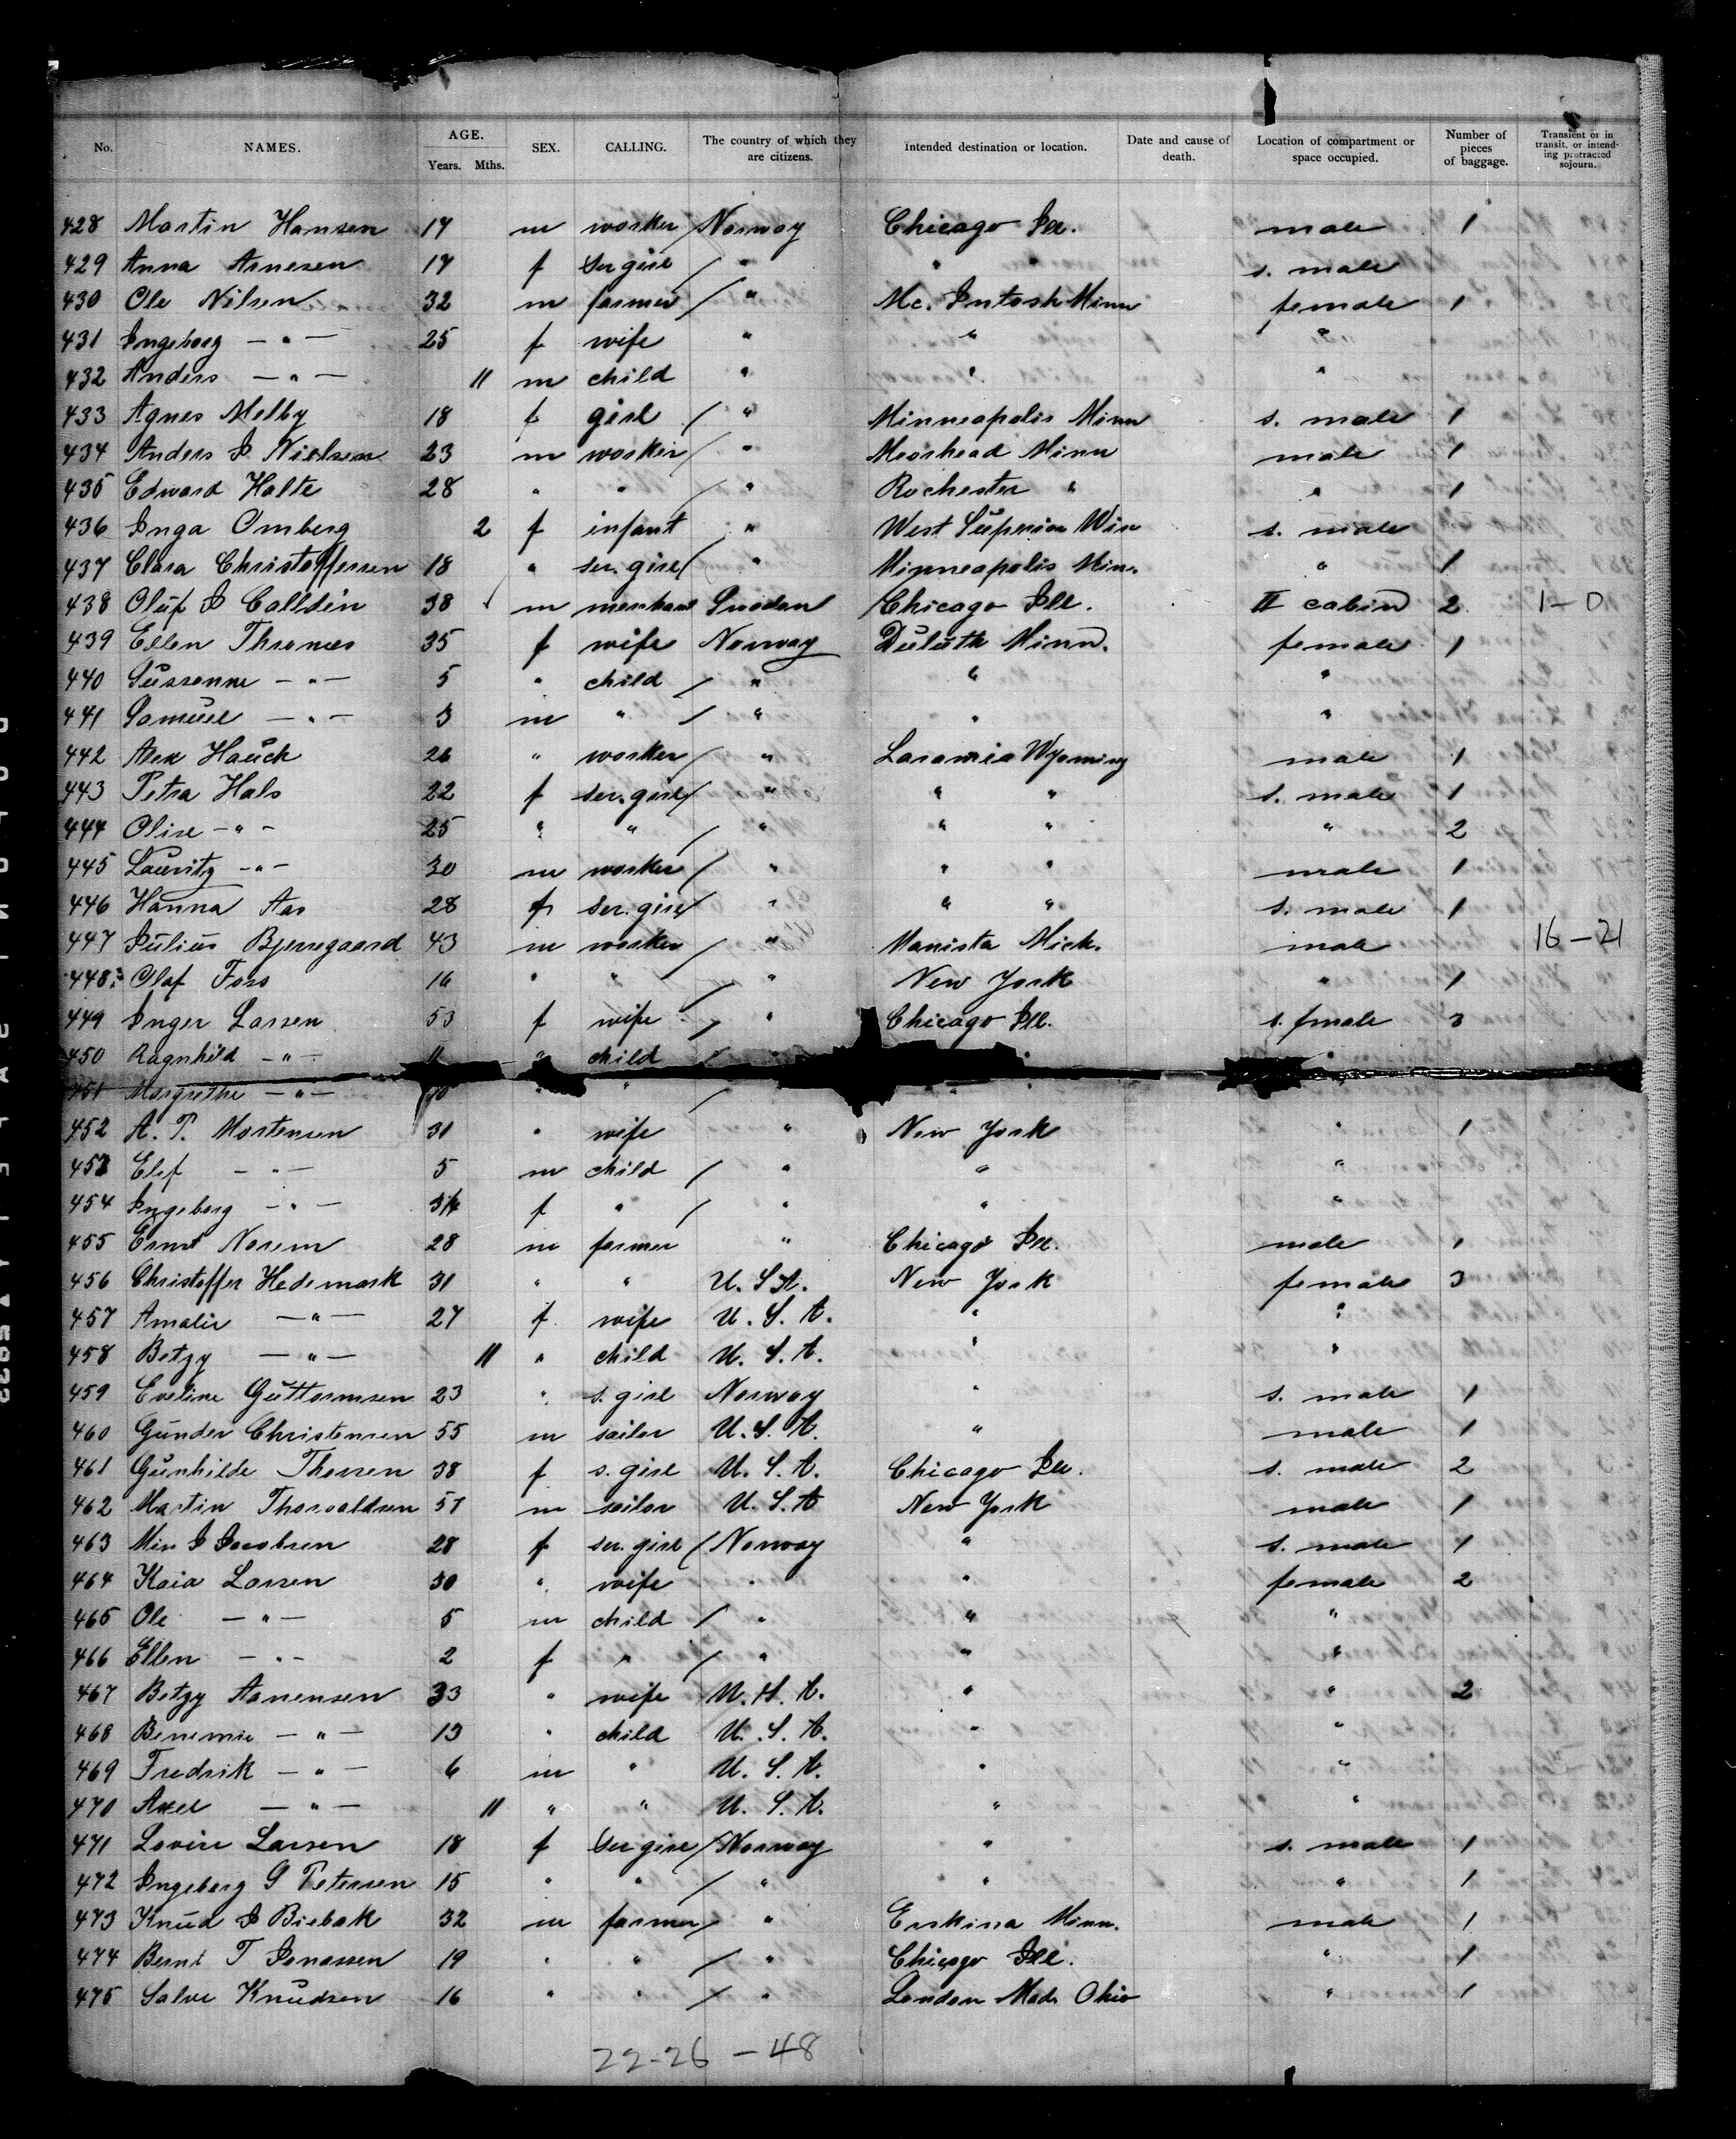 No. NAMES. AGE. Years. Mths. SEX. CALLING. The country of which they are citizens. Intended destination or location. Date and cause of death. Location of compartment or space occupied. Number of pieces of baggage. Transient or in transit, or intending protracted sojourn.
428 Martin Hansen 17 m worker / Norway Chicago Ill. male 1
429 Anna Arnesen 17 f Ser girl / " " " s. male
430 Ole Nilsen 32 m farmer / " Mc. Intosh Minn female 1
431 Ingeborg — " — 25 f wife " " "
432 Anders — " — 11 m child " " "
433 Agnes Melby 18 f girl / " Minneapolis Minn s. male 1
434 Anders I. Nielsen 23 m worker / " Moorhead Minn male 1
435 Edward Holte 28 " " / " Rochester " " 1
436 Inga Omberg 2 f infant " West Superior Wis s. male
437 Clara Christoffersen 18 " ser. girl / " Minneapolis Minn. " 1
438 Oluf I Calldin 38 m merchant Sweden / Chicago Ill. II cabin 2 1-0
439 Ellen Thromes 35 f wife Norway Duluth Minn. female 1
440 Sussanne — " — 5 " child / " " "
441 Samuel — " — 3 m " / " " "
442 Alex Hauch 26 " worker / " Laramie Wyoming male 1
443 Petra Hals 22 f ser. girl / " " " s. male 1
444 Olise — " — 25 " " / " " " " 2
445 Lauritz — " — 30 m worker / " " " male 1
446 Hanna Aas 28 f ser. girl / " " " s. male 1
447 Julius Bjerregaard 43 m worker / " Manista Mich. male 16-21
448 Olaf Foss 16 " " / " New York " 1
449 Inger Larsen 53 f wife / " Chicago Ill. s. fmale 3
450 Ragnhild — " — 11 " child / " " "
451 Margrethe — " — 10 " " / "
452 A. T. Mortensen 31 " wife " New York " 1
453 Elef — " — 5 m child / " " "
454 Ingeborg — " — f " / " " "
455 Ernst Norem 28 m farmer " Chicago Ill. male 1
456 Christoffer Hedemark 31 " " U. S A. New York female 3
457 Amalie — " — 27 f wife U. S. A. " "
458 Betzy — " — 11 " child U. S. A. " "
459 Eveline Guttormsen 23 " s. girl Norway " s. male 1
460 Gunder Christensen 55 m sailor U. S. A. " male 1
461 Gunhilde Thorsen 38 f s. girl U. S. A. Chicago Ill. s. male 2
462 Martin Thorvaldsen 57 m sailor U. S. A New York male 1
463 Min I Jacobsen 28 f ser. girl / Norway " s. male 1
464 Kaia Larsen 30 " wife " " female 2
465 Ole — " — 5 m child / " " "
466 Ellen — " — 2 f " / " " "
467 Betzy Aanensen 33 " wife U. S. A. " " 2
468 — " — 13 " child U. S. A. " "
469 Fredrik — " — 6 m " U. S. A. " "
470 Axel — " — 11 " " U. S. A. " "
471 Lovise Larsen 18 f Ser girl / Norway " s. male 1
472 Ingeborg G Petersen 15 " " / " " " 1
473 Knud I Birbak 32 m farmer / " Erskina Minn. male 1
474 Bernt T Jonassen 19 " " / " Chicago Ill. " 1
475 Salve Knudsen 16 " " / " London Mad. Ohio " 1
22-26 - 48